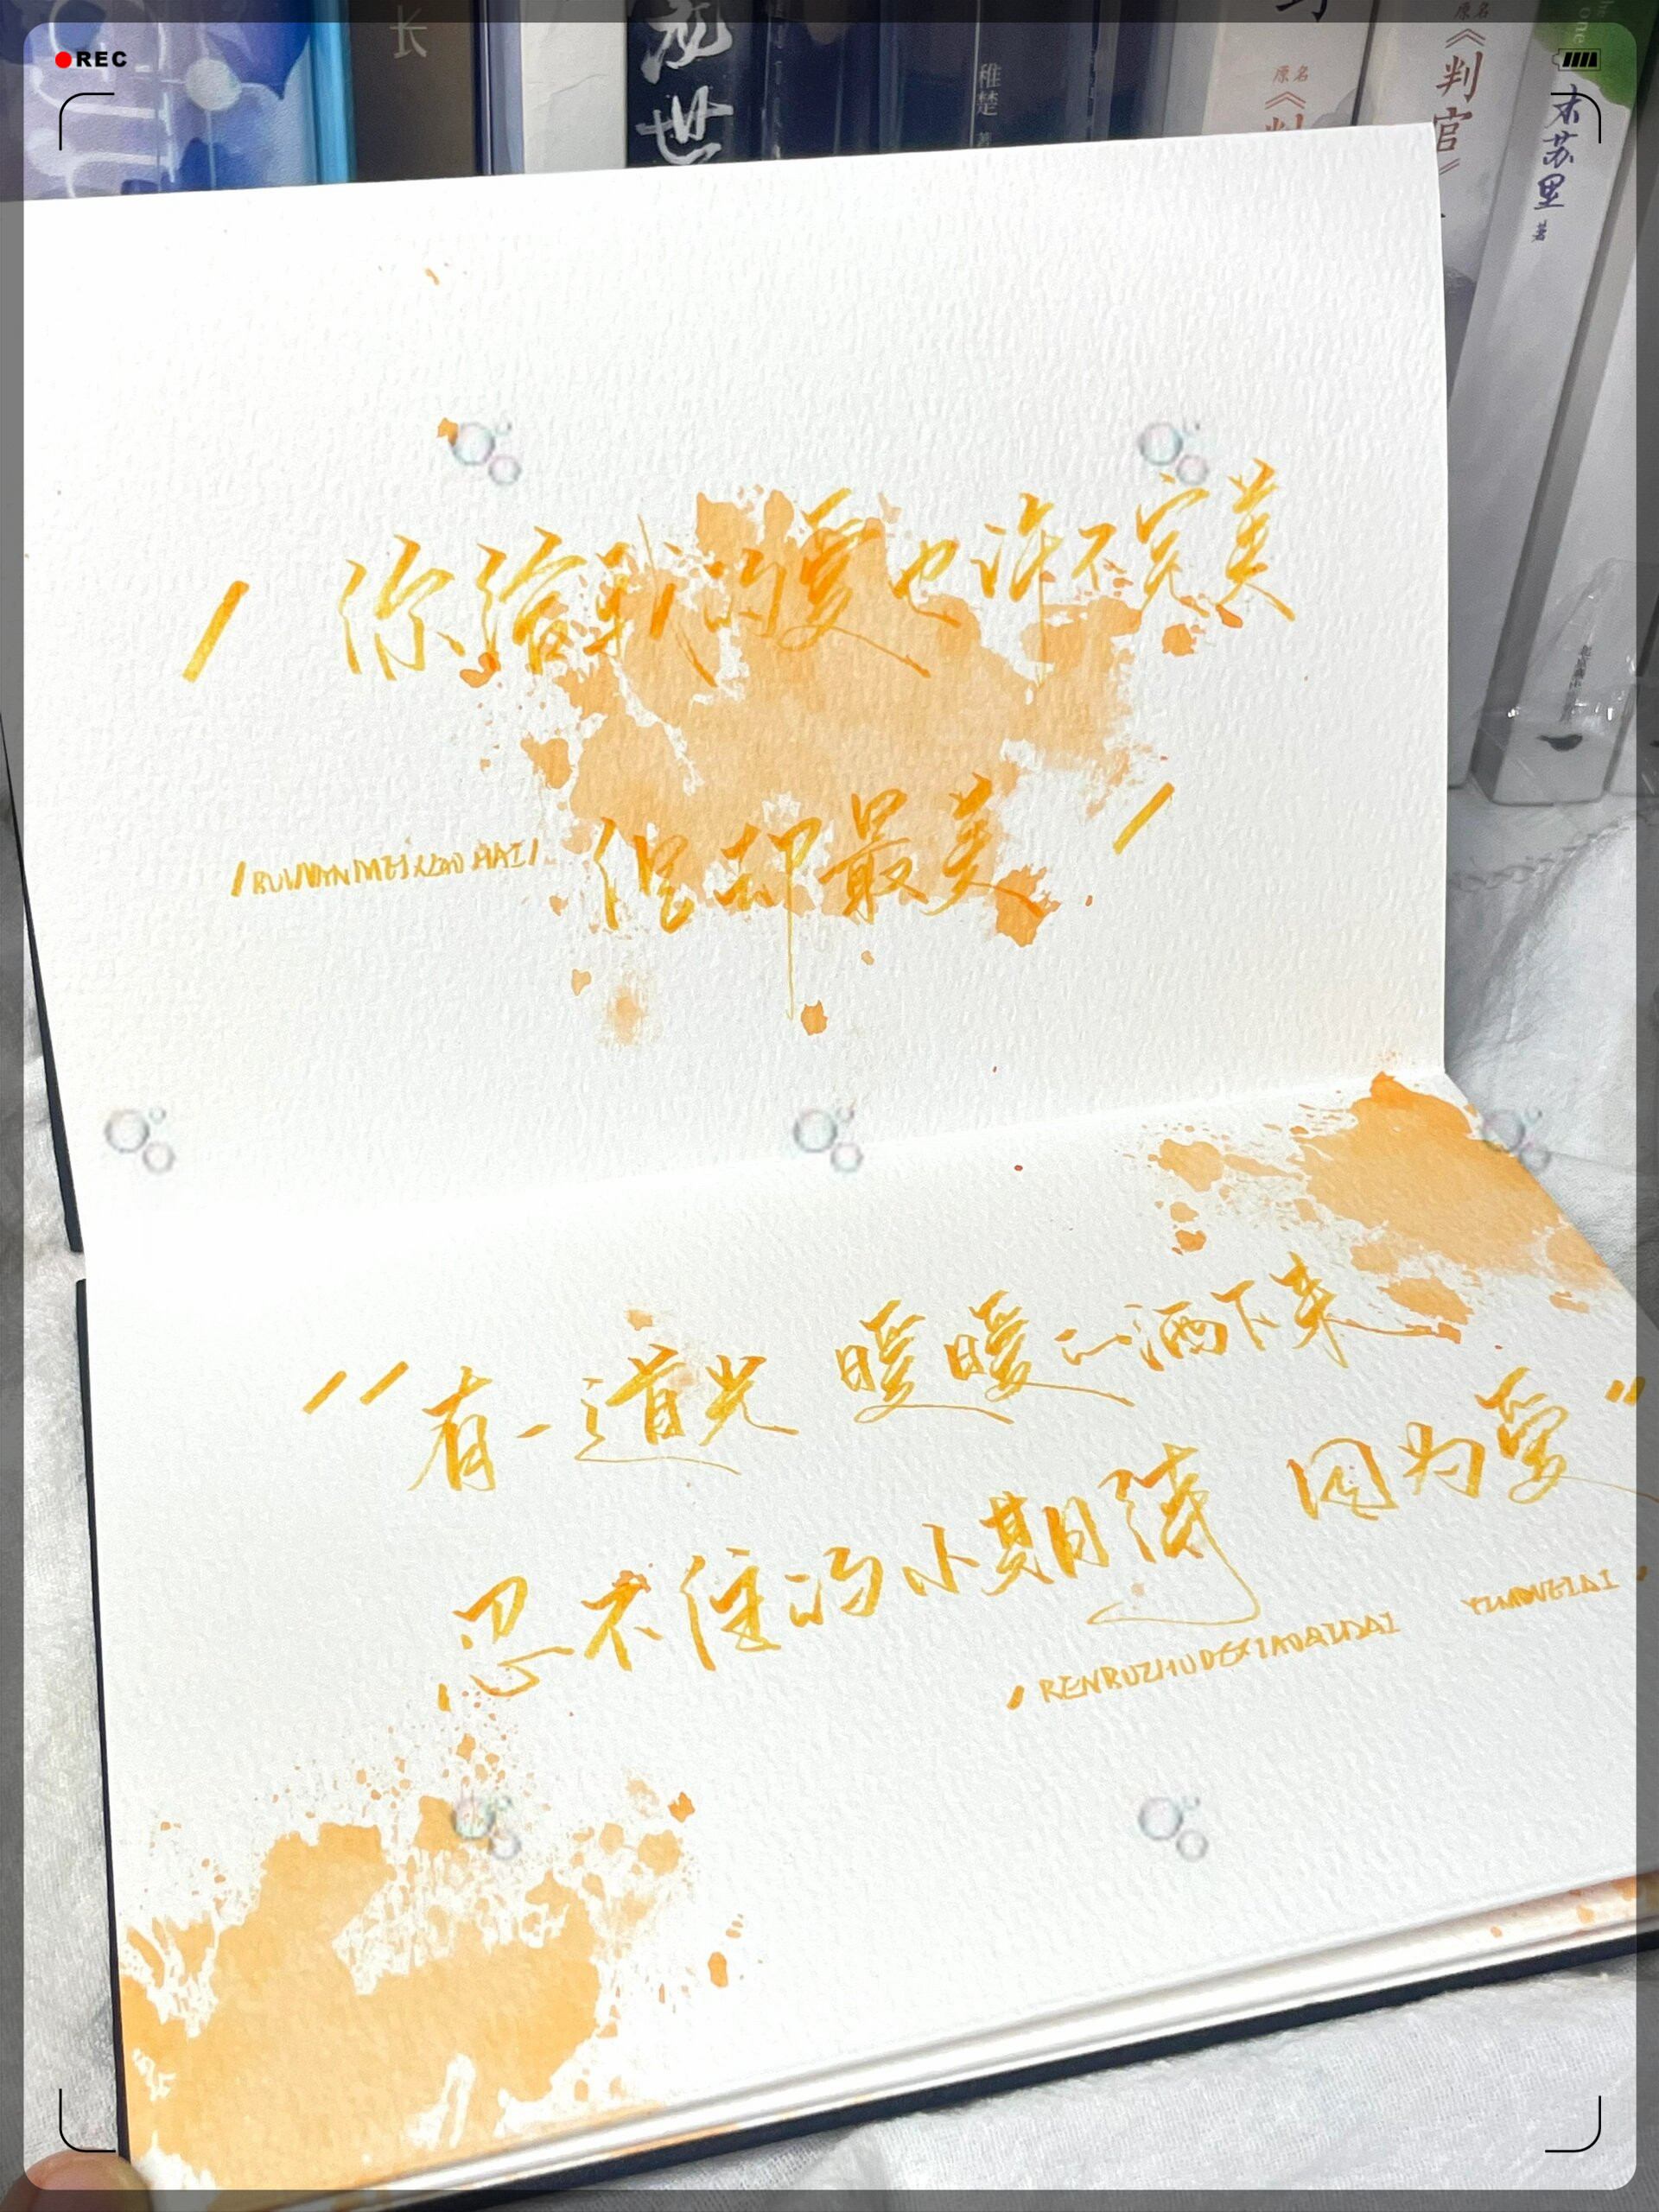 REC
长
龙世
稚楚 著
原名
《判
原名
《判官》
木苏里 著
/ 你给我的爱也许不完美
但却最美 /
/BUWANMEIXIAOHAI/
"有一道光 暖暖的洒下来
忍不住的小期待 因为爱"
/RENBUZHUDEXIAOQIDAI